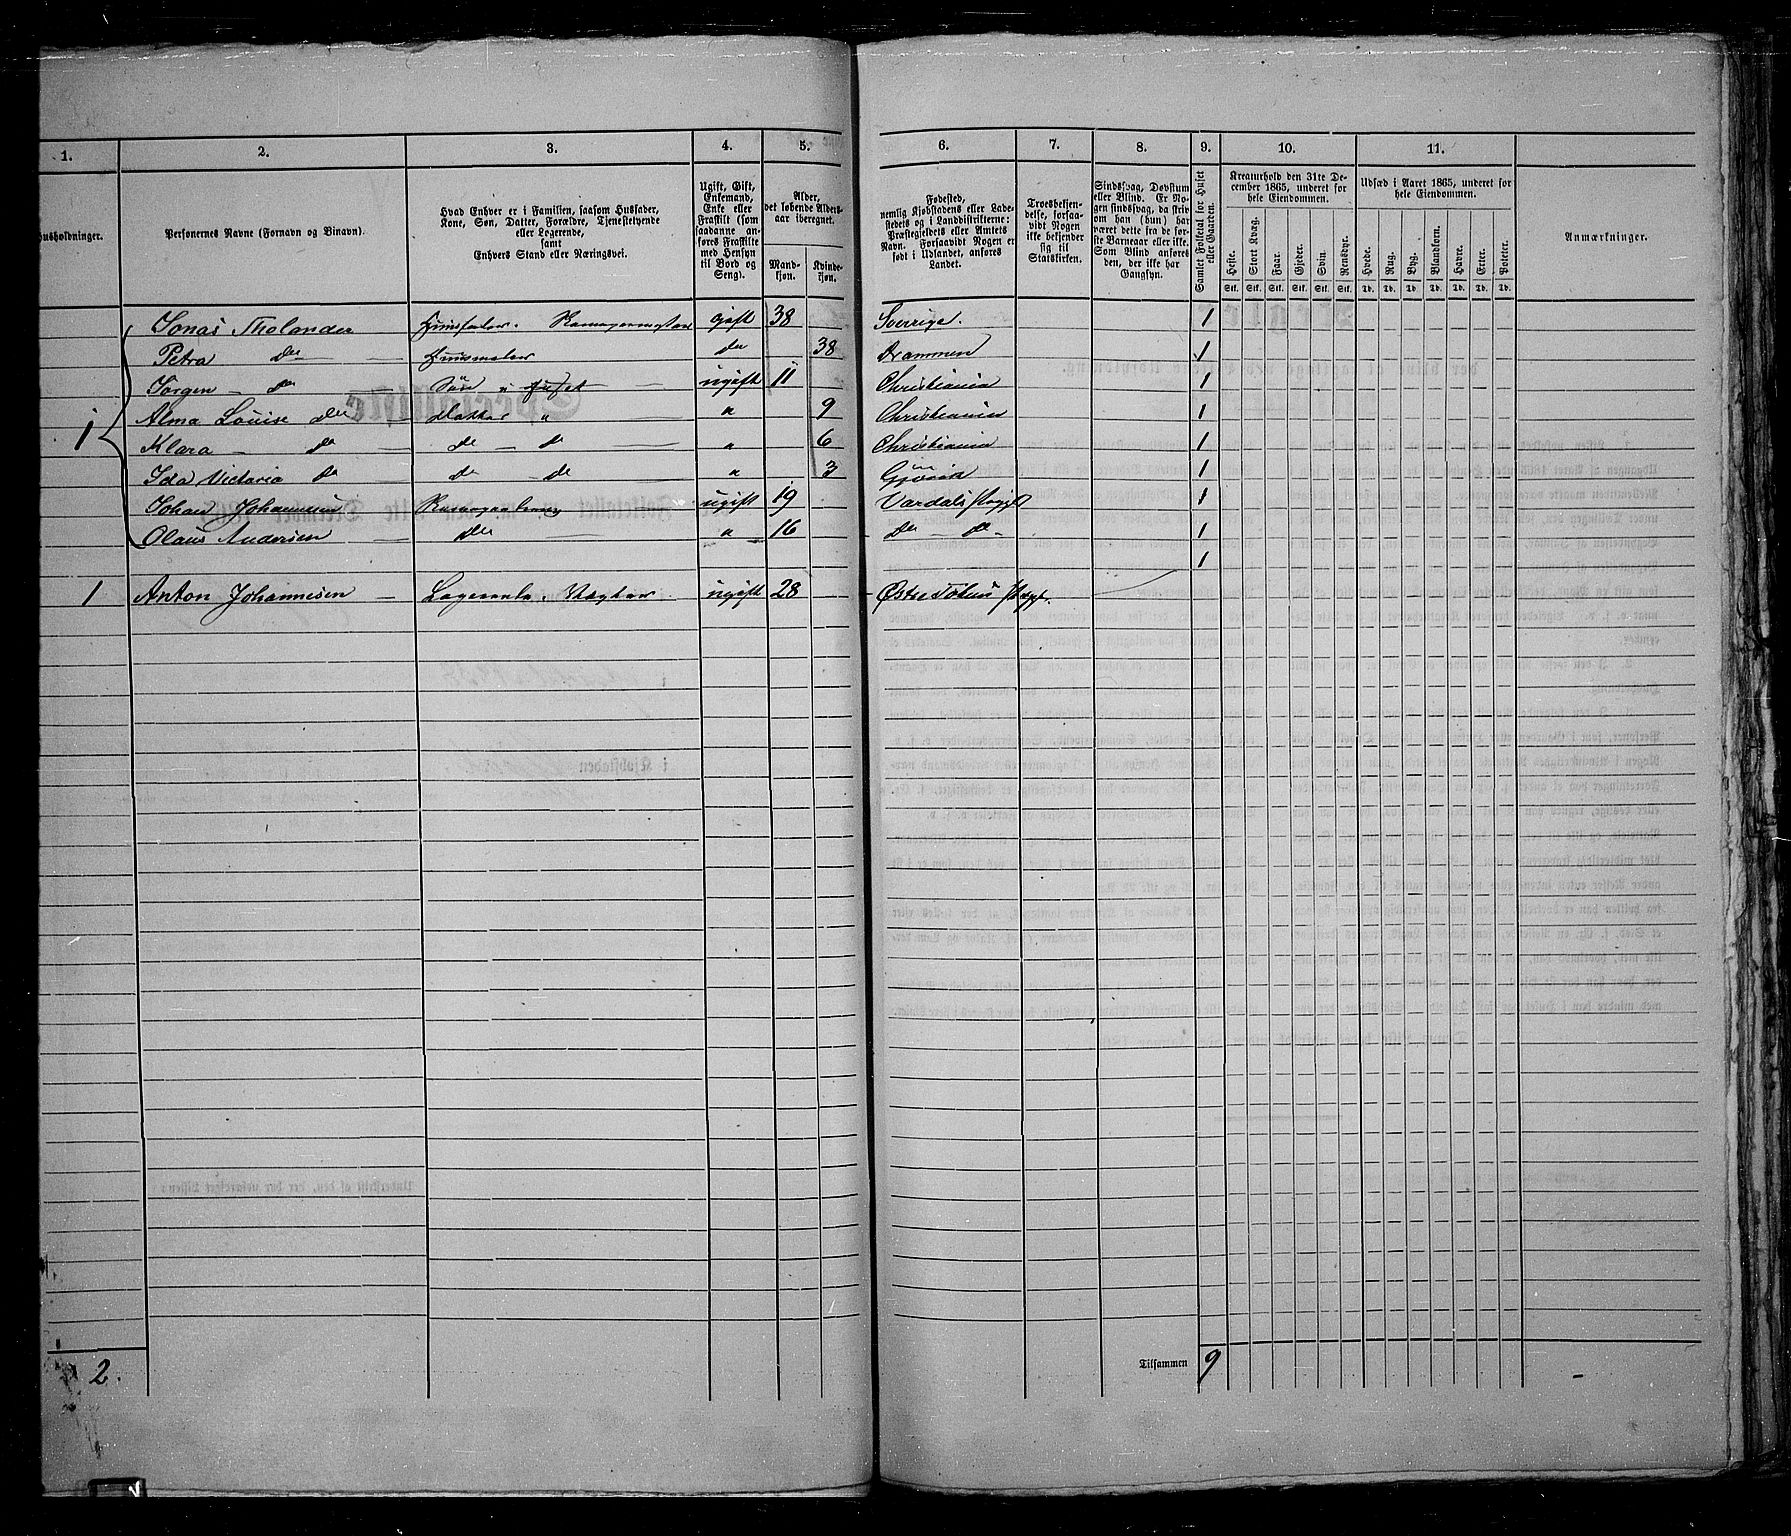 1. 2. 3. 4. 5. 6. 7. 8. 9. 10. 11.
Husholdninger.
Personernes Navne (Fornavn og Binavn).
Hvad Enhver er i Familien, saasom Husfader, Kone, Søn, Datter, Forældre, Tjenestetyende eller Logerende, samt Enhvers Stand eller Næringsvei.
Ugift, Gift, Enkemand, Enke eller Fraskilt (som saadanne anføres Fraskilte med Hensyn til Bord og Seng).
Alder, det løbende Alders-aar iberegnet.
Mand-kjøn. Kvinde-kjøn.
Fødested, nemlig Kjøbstadens eller Ladestedets og i Landdistrikterne: Præstegjeldets eller Amtets Navn. Forsaavidt Nogen er født i Udlandet, anføres Landet.
Troesbekjendelse, forsaavidt Nogen ikke bekjender sig til Statskirken.
Sindssvag, Døvstum eller Blind. Er Nogen sindssvag, da skriv om han (hun) har været dette fra de første Barneaar eller ikke. Som Blind anføres den, der ikke har Gangsyn.
Samlet Folketal for Huset eller Gaarden.
Kreaturhold den 31te December 1865, underet for hele Eiendommen.
Heste. Stort Kvæg. Faar. Gjeder. Svin. Rensdyr.
Stk. Stk. Stk. Stk. Stk. Stk.
Udsæd i Aaret 1865, underet for hele Eiendommen.
Hvede. Rug. Byg. Blandkorn. Havre. Erter. Poteter.
Td. Td. Td. Td. Td. Td. Td.
Anmærkninger.
Jonas Tholander gift 38 Sverige. 1
Petra do do 38 Drammen 1
Jørgen - do Søn i Huset ugift 11 Christiania 1
1 Alma Louise do Datter " " 9 Christiania 1
Klara - do do - do " 6 Christiania 1
Ida Victoria do do - do " 3 Gjøvik 1
Johan Johannesen ugift 19 Vardals Prgjl 1
Olaus Andersen do " 16 do - do - 1
1
1 Anton Johannesen - Logerende. Vægter ugift 28 Østre Toten Prgjl.
2. Tilsammen 9